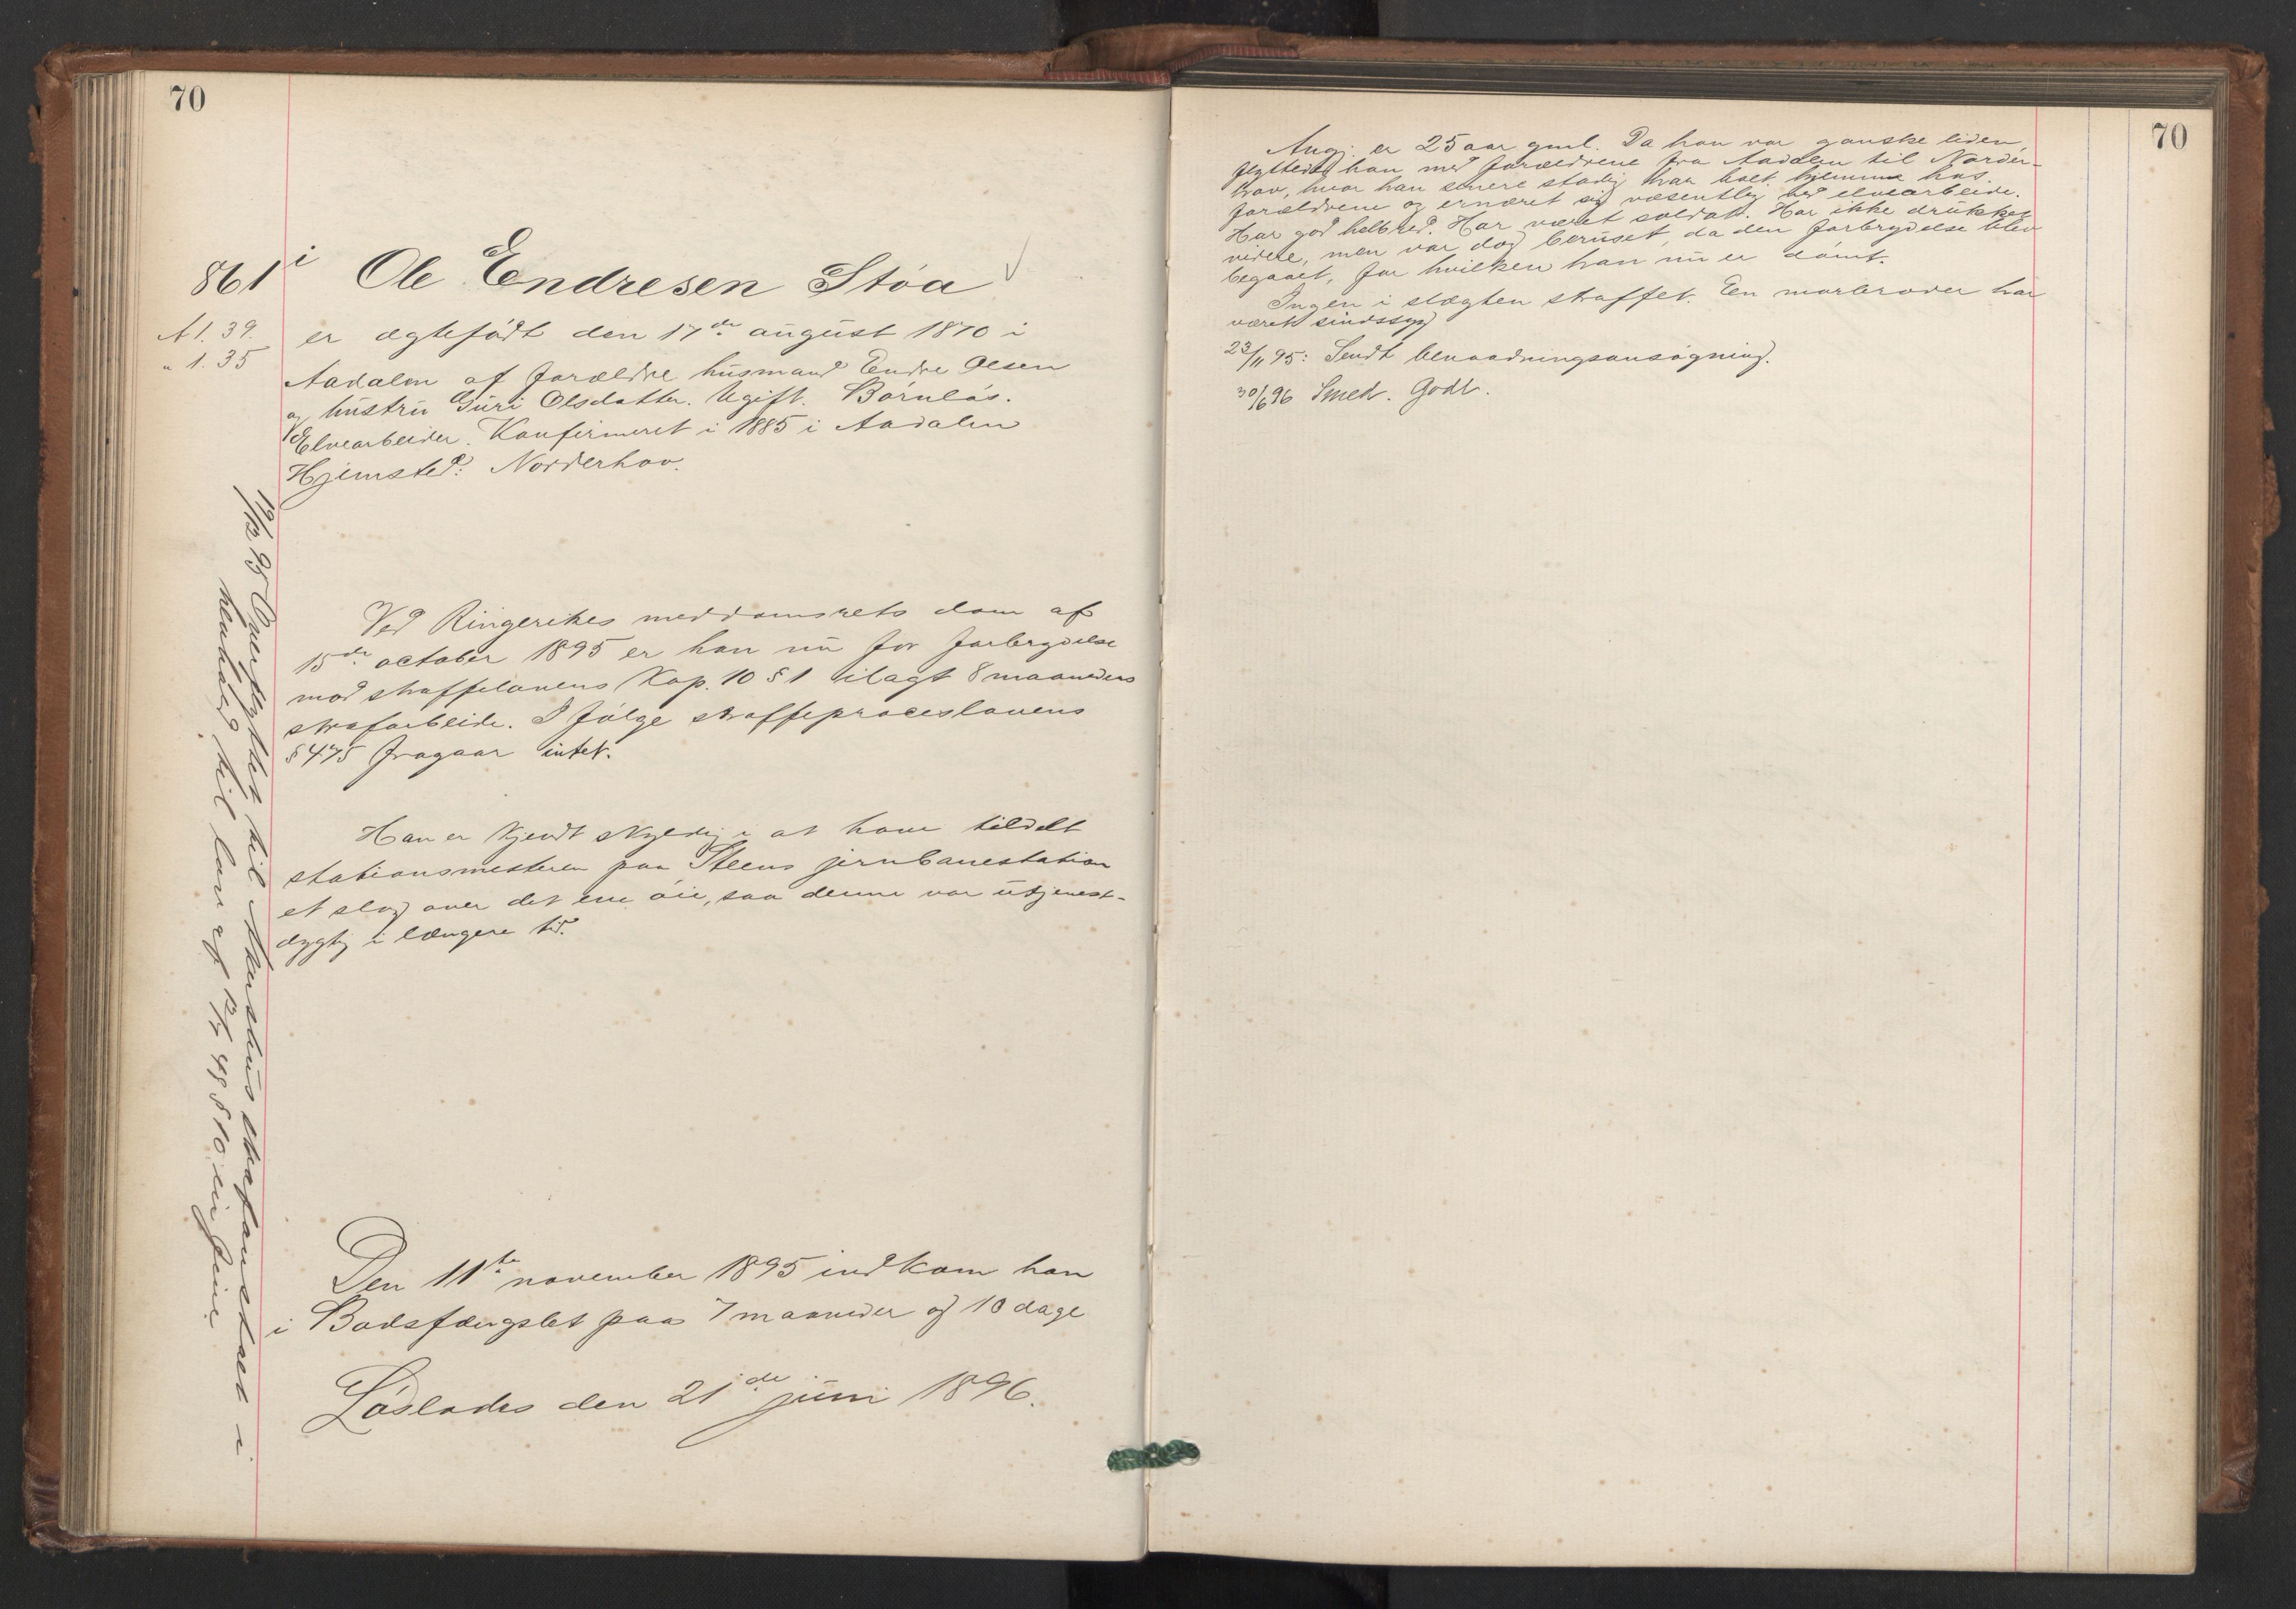 70
861 i Ole Endresen Stöa
A 1. 39.
" 1. 35
er ægtefödt den 17de august 1870 i
Aadalen af forældre husmand Endre Olsen
og hustru Guri Olsdatter. Ugift. Börnlös.
Elvearbeider. Konfirmeret i 1885 i Aadalen
Hjemsted: Norderhov.
Ved Ringerikes meddomsrets dom af
15de october 1895 er han nu for forbrydelse
mod straffelovens Kap. 10 § 1 ilagt 8 maaneders
strafarbeide. I fölge straffeproceslovens
§ 475 fragaar intet.
Han er kjendt skyldig i at have tildelt
stationsmesteren paa Steens jernbanestation
et slag over det ene öie, saa denne var utjenest-
dygtig i længere tid.
Den 11te november 1895 indkom han
i Bodsfængslet paa 7 maaneder og 10 dage
Löslades den 21de juni 1896.
19/12 95 Overflyttet til Akershus strafanstalt i
henhold til lov af 12/7 48 § 10
70
Ang: er 25 aar gml. Da han var ganske liden,
flyttede han med forældrene fra Aadalen til Norder-
hov, hvor han senere stadig har havt hjemme hos
forældrene og ernæret sig væsentlig ved elvearbeide.
Har god helbred. Har været soldat. Har ikke drukket
videre, men var dog beruset, da den forbrydelse blev
begaaet, for hvilken han nu er dömt.
Ingen i slægten straffet. En morbroder har
været sindssyg
23/11 95: Sendt benaadningsansögning.
30/6 96 Smed. Godt.